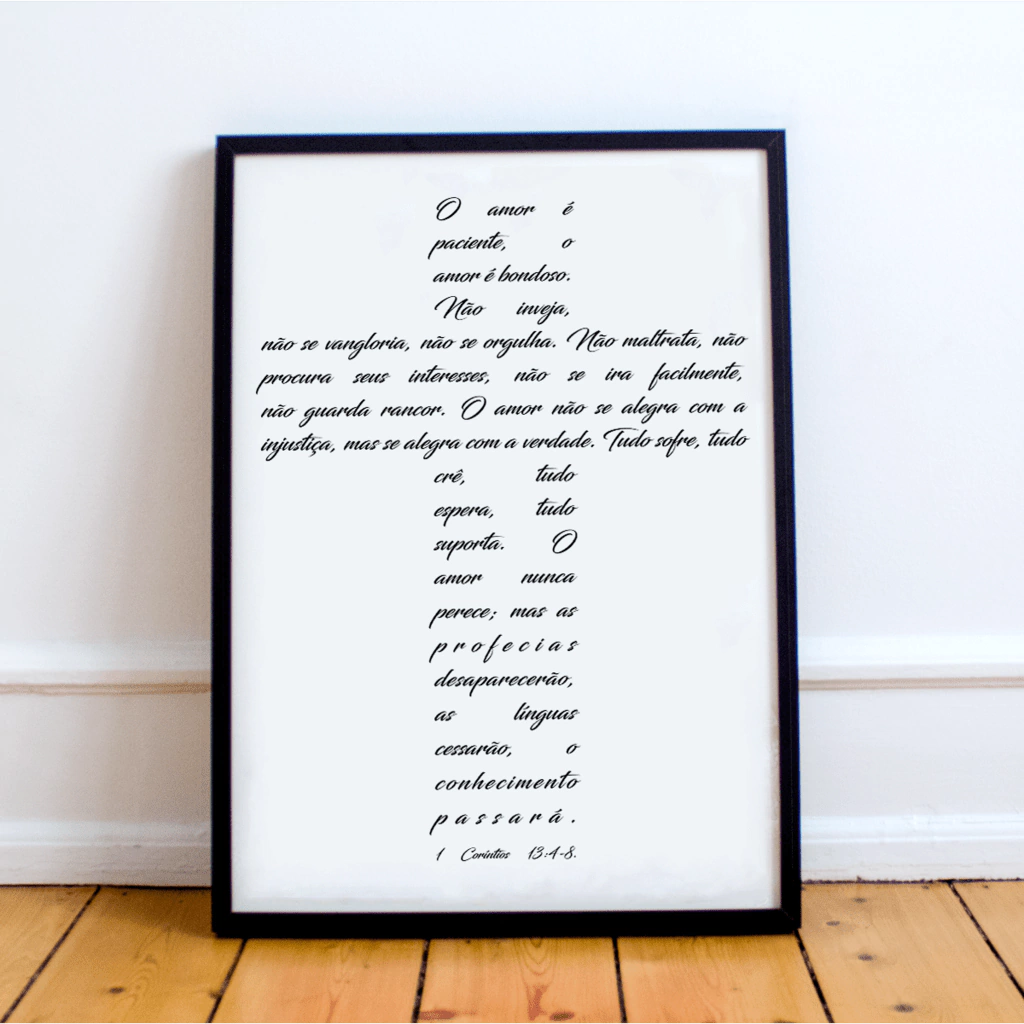 O amor é
paciente, o
amor é bondoso.
Não inveja,
não se vangloria, não se orgulha. Não maltrata, não
procura seus interesses, não se ira facilmente,
não guarda rancor. O amor não se alegra com a
injustiça, mas se alegra com a verdade. Tudo sofre, tudo
crê, tudo
espera, tudo
suporta. O
amor nunca
perece; mas as
profecias
desaparecerão,
as línguas
cessarão, o
conhecimento
passará.
1 Coríntios 13:4-8.